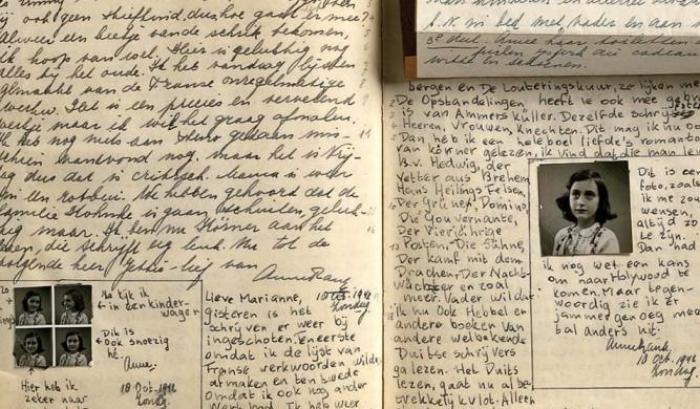 hij ooit geen stiefkind, dus hoe gaat er mee?
Alweer een beetje van de schrik bekomen,
ik hoop van wel. Hier is gelukkig nog
alles bij het oude. Ik heb vandaag lijsten
gemaakt van de Franse onregelmatige
werkw. Dat is een precies en vervelend
werkje maar ik wil het graag afmaken.
Ik heb nog niets aan steno gedaan mis-
schien vanavond nog, maar het is Vrij-
dag dus dat is critisch. Mama is weer
in een
We hebben gehoord dat de
familie is gaan geluk-
kig maar. Ik ben nu Körner aan het
lezen, die schrijft erg leuk. Nu tot de
volgende keer Jettie-lief van
Anne Frank
Nu kijk ik
in den kinder-
wagen
Dit is
ook snoezig
hè.
Anne.
Hier heb ik
zeker naar
18 Oct. 1942
Zondag.
Lieve Marianne,
10 Oct. 1942
Zondag
gisteren is het
schrijven er weer bij
ingeschoten. Ten eerste
omdat ik de lijst van
Franse werkwoorden wilde
afmaken en ten tweede
omdat ik ook nog ander
werk had. Ik heb weer
bergen en De Louteringskuur, ze lijken me
De Opstandelingen heeft ie ook mee
is van Ammers Küller. Dezelfde schrijf
Heeren, Vrouwen, Knechten. Die mag ik nu o
Dan heb ik een heleboel liefde's romanto
van Körner gelezen, ik vind dat die man
B.v. Hedwig, der
Vetter aus Bremen
Hans Heilings Felsen,
Der Grüne Domino,
Die Gouvernante,
Der Vierjährige
Posten, Die Sühne,
Der Kampf mit dem
Drachen, Der Nacht-
wächter en zoal
meer. Vader wil dat
ik nu ook Hebbel en
andere boeken van
andere welbekende
Duitse schrijvers
ga lezen. Het Duits
lezen, gaat nu al be-
trekkelijk vlot. Alleen
Dit is een
foto, zoals
ik me zou
wensen,
altijd zo
te zijn.
Dan had
ik nog wel een kans
om naar Holywood te
komen. Maar tegen-
woordig zie ik er
jammer genoeg mees-
tal anders uit.
Anne Frank.
10 Oct. 1942
Zondag.